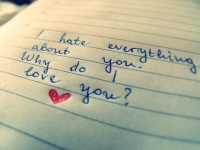 I hate everything
about you.
Why do I
love you?